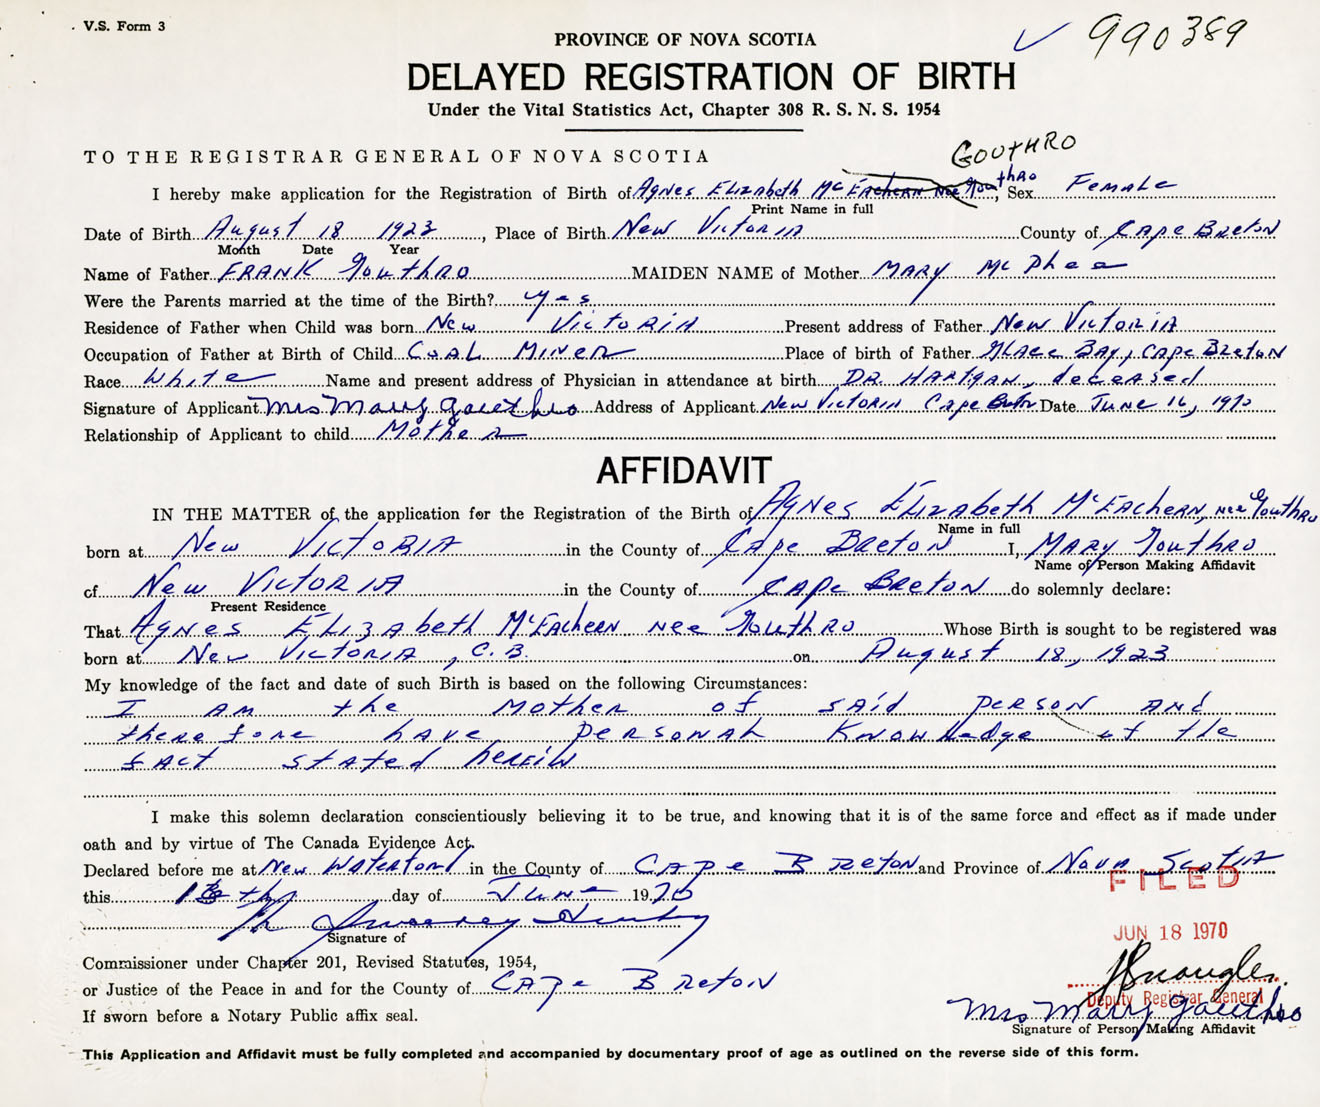 V.S. Form 3
990389
PROVINCE OF NOVA SCOTIA
DELAYED REGISTRATION OF BIRTH
Under the Vital Statistics Act, Chapter 308 R. S. N. S. 1954
TO THE REGISTRAR GENERAL OF NOVA SCOTIA
GOUTHRO
I hereby make application for the Registration of Birth of Agnes Elizabeth McEachern nee Gouthro, Sex Female
Print Name in full
Date of Birth August 18 1923, Place of Birth New Victoria County of Cape Breton
Month Date Year
Name of Father FRANK Gouthro MAIDEN NAME of Mother MARY McPhee
Were the Parents married at the time of the Birth? Yes
Residence of Father when Child was born New Victoria Present address of Father New Victoria
Occupation of Father at Birth of Child Coal Miner Place of birth of Father Glace Bay, Cape Breton
Race White Name and present address of Physician in attendance at birth DR. HARTGAN, deceased
Signature of Applicant Mrs Mary Gouthro Address of Applicant New Victoria Cape Breton Date June 16, 1970
Relationship of Applicant to child Mother
AFFIDAVIT
IN THE MATTER of the application for the Registration of the Birth of Agnes Elizabeth McEachern, nee Gouthro
Name in full
born at New Victoria in the County of Cape Breton I, Mary Gouthro
Name of Person Making Affidavit
of New Victoria in the County of Cape Breton do solemnly declare:
Present Residence
That Agnes Elizabeth McEachern nee Gouthro Whose Birth is sought to be registered was
born at New Victoria, C.B. on August 18, 1923
My knowledge of the fact and date of such Birth is based on the following Circumstances:
I am the Mother of said person and
therefore have personal knowledge of the
fact stated herein
I make this solemn declaration conscientiously believing it to be true, and knowing that it is of the same force and effect as if made under
oath and by virtue of The Canada Evidence Act.
Declared before me at New Waterford in the County of Cape Breton and Province of Nova Scotia
this 16th day of June 1970
FILED
JUN 18 1970
Signature of
Commissioner under Chapter 201, Revised Statutes, 1954,
or Justice of the Peace in and for the County of Cape Breton
Deputy Registrar General
If sworn before a Notary Public affix seal.
Mrs Mary Gouthro
Signature of Person Making Affidavit
This Application and Affidavit must be fully completed and accompanied by documentary proof of age as outlined on the reverse side of this form.